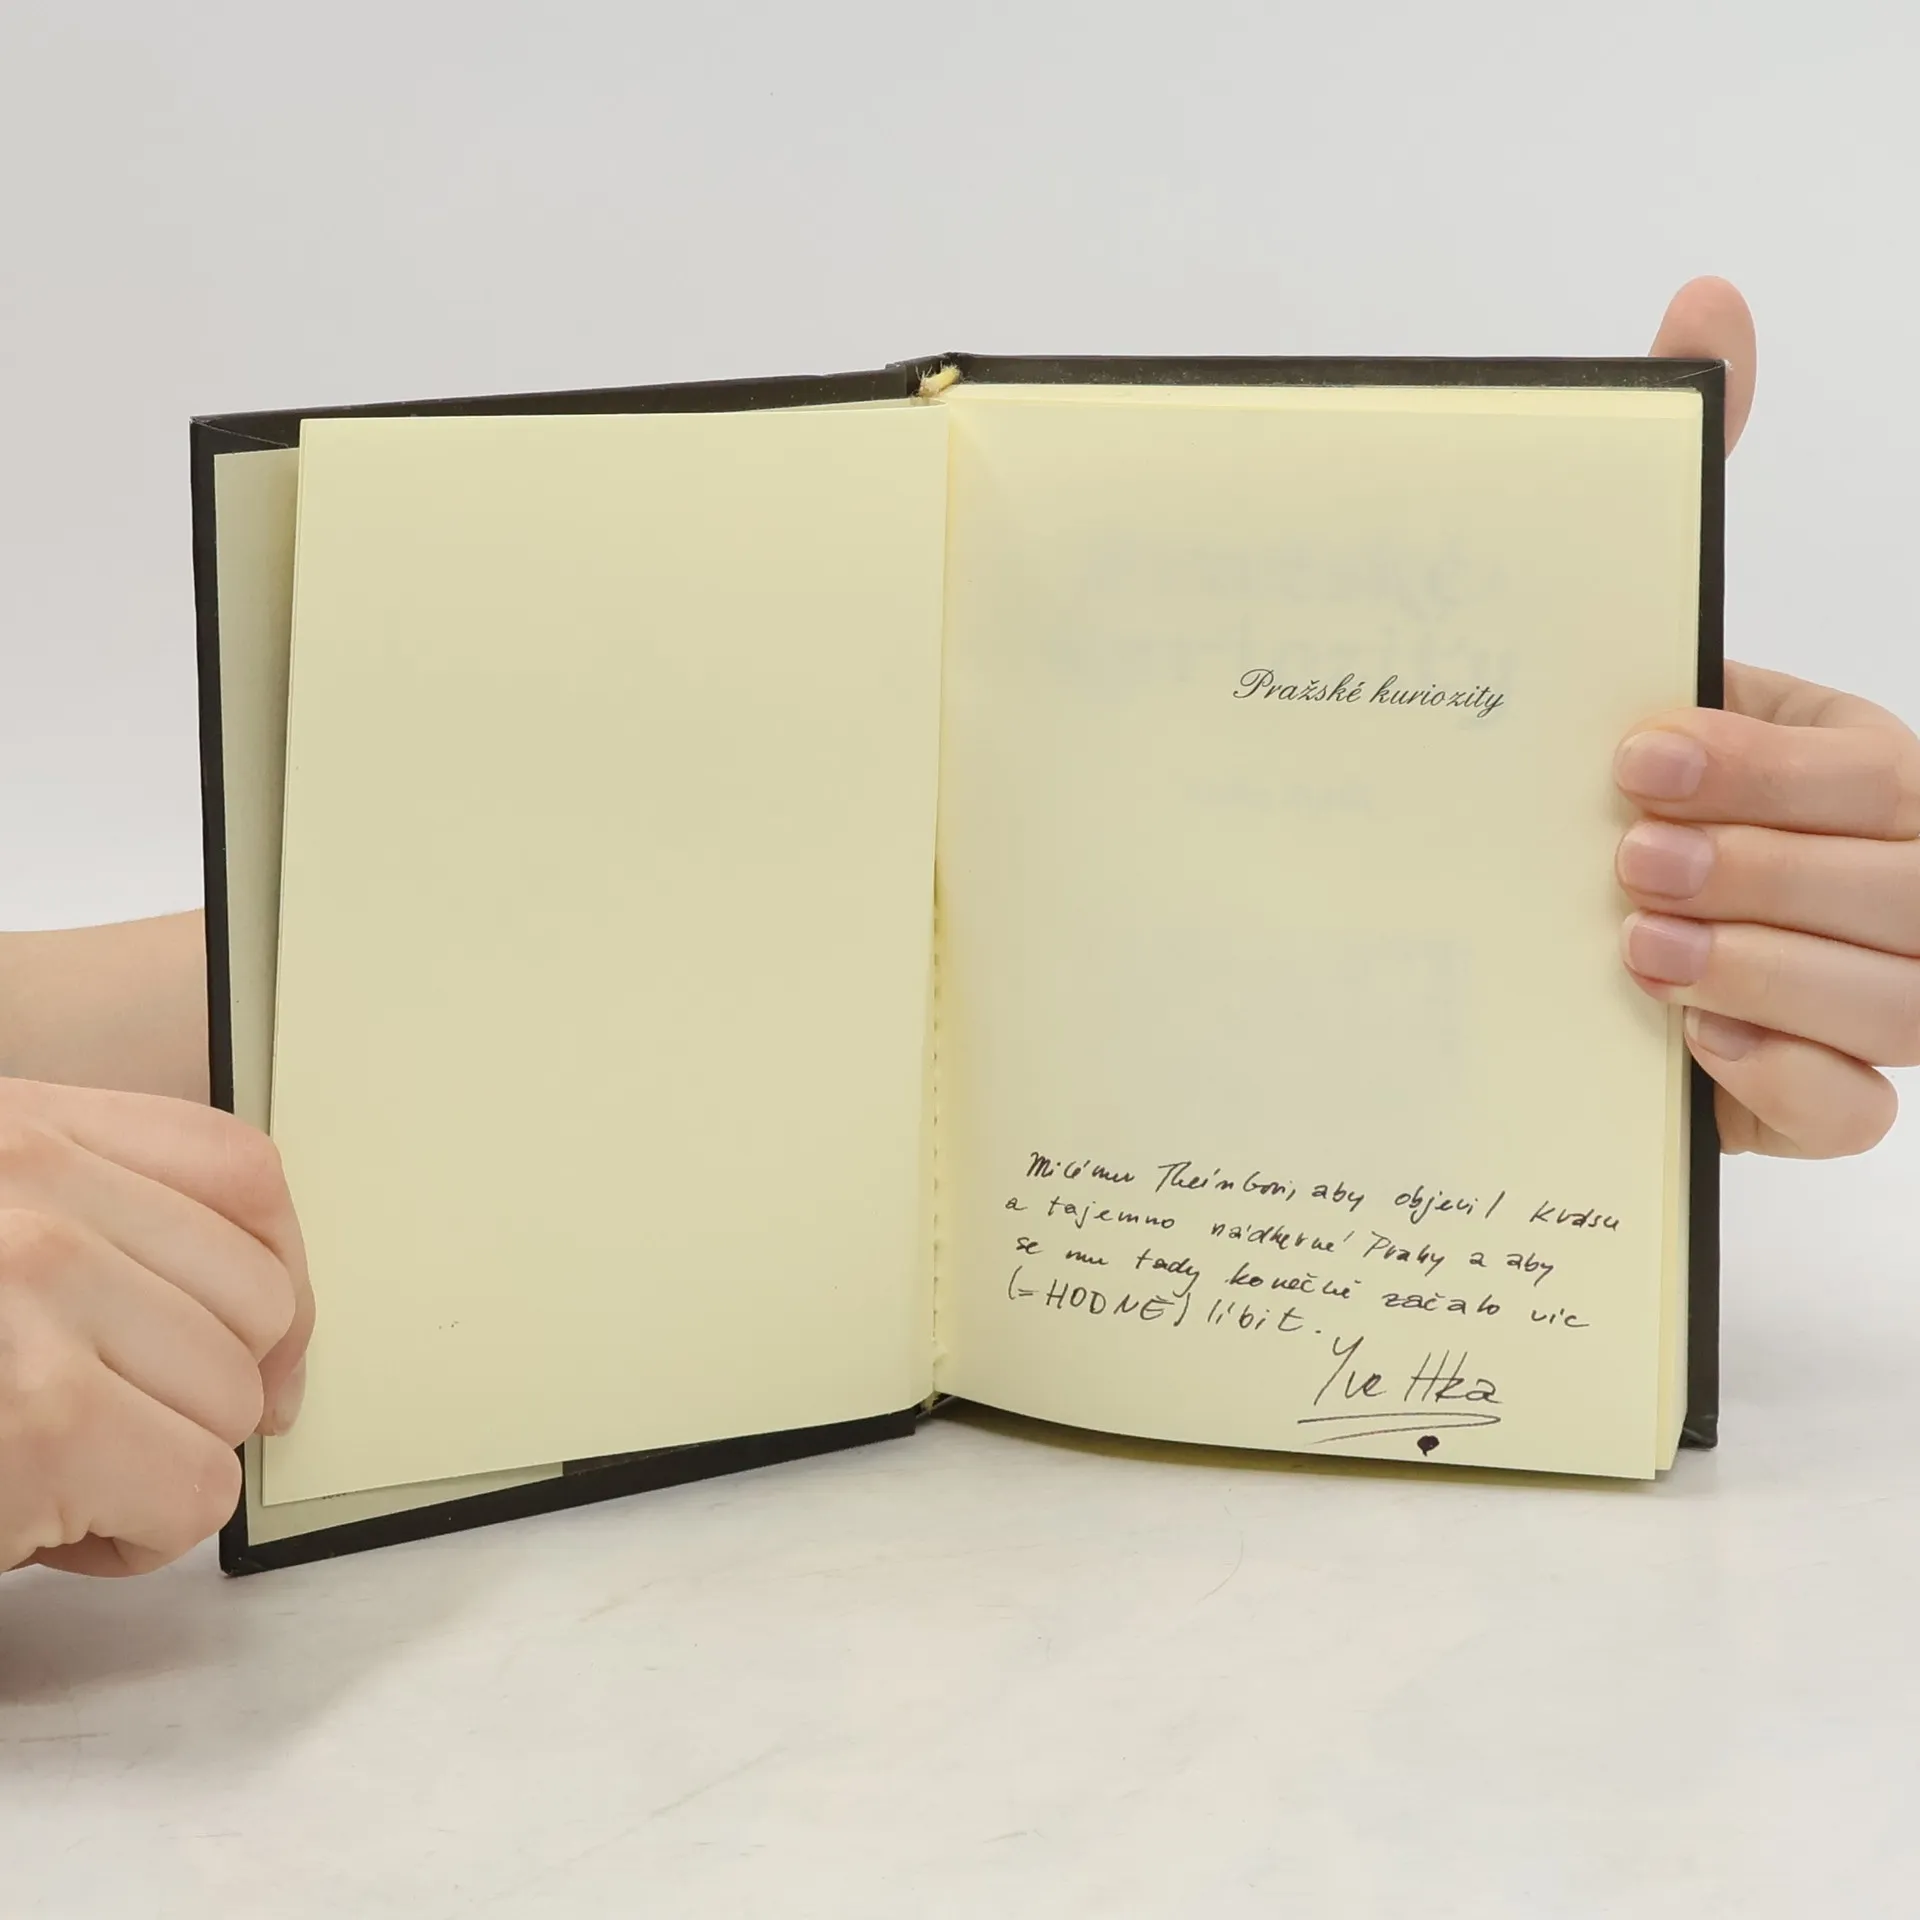 Pražské kuriozity
Milému aby objevil krásu
a tajemno nádherné Prahy a aby
se mu tady konečně začalo víc
(=HODNĚ) líbit.
Yvettka